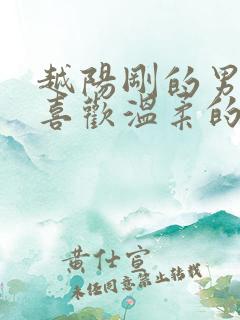 越陽剛的男
喜歡溫柔的
黄仕宣
未经同意禁止转载